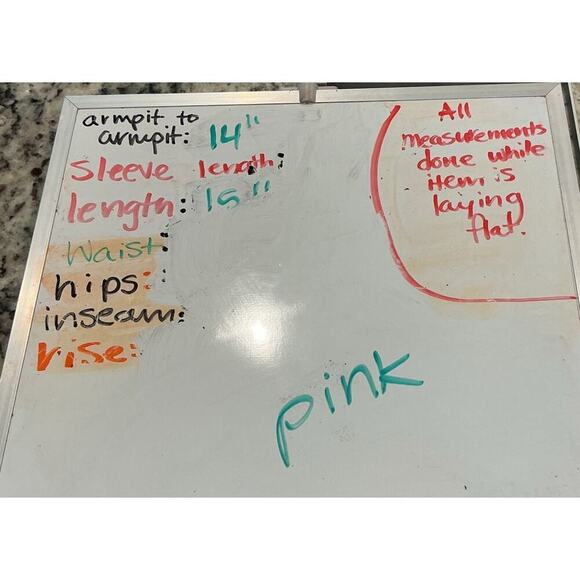 armpit to
armpit: 14"
Sleeve length:
length: 15"
Waist:
hips:
inseam:
rise:
All
measurements
done while
item is
laying
flat.
pink